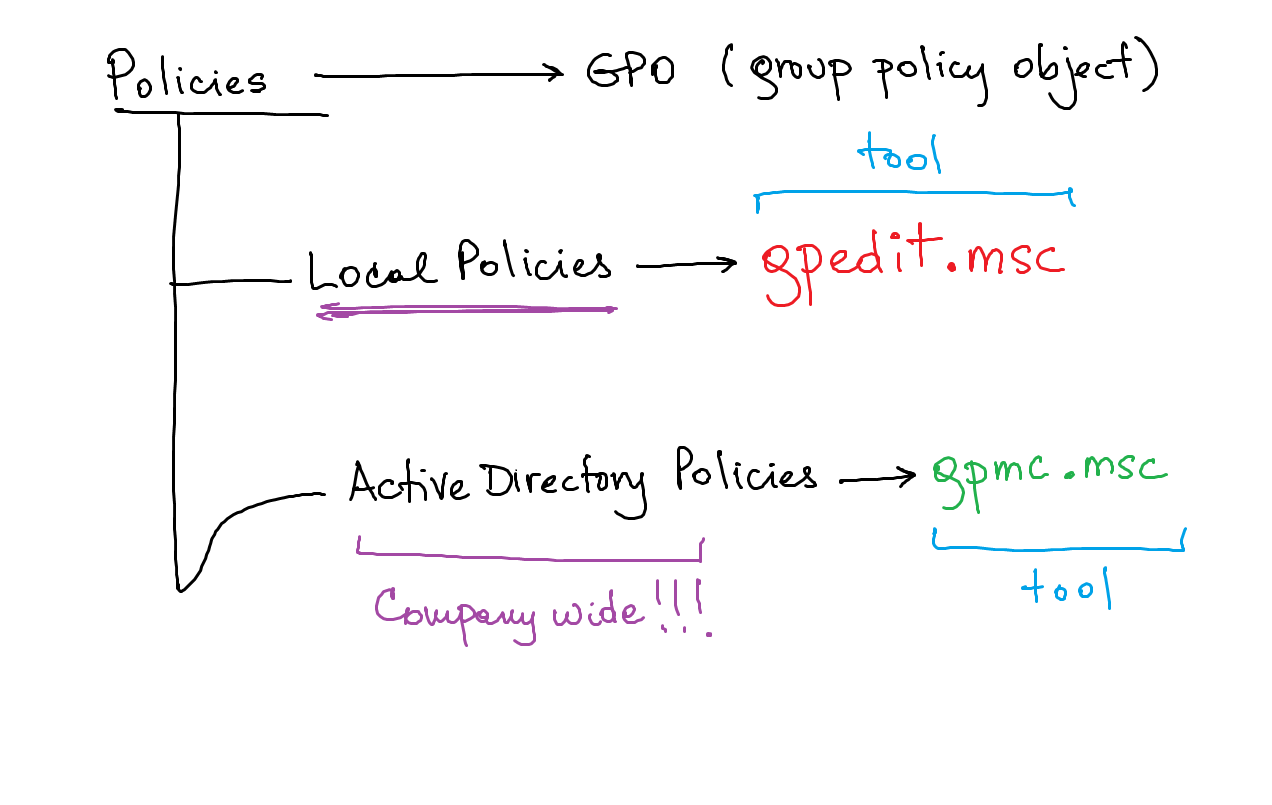 Policies → GPO (group policy object)
tool
Local Policies → gpedit.msc
Active Directory Policies → gpmc.msc
Company wide!!!
tool